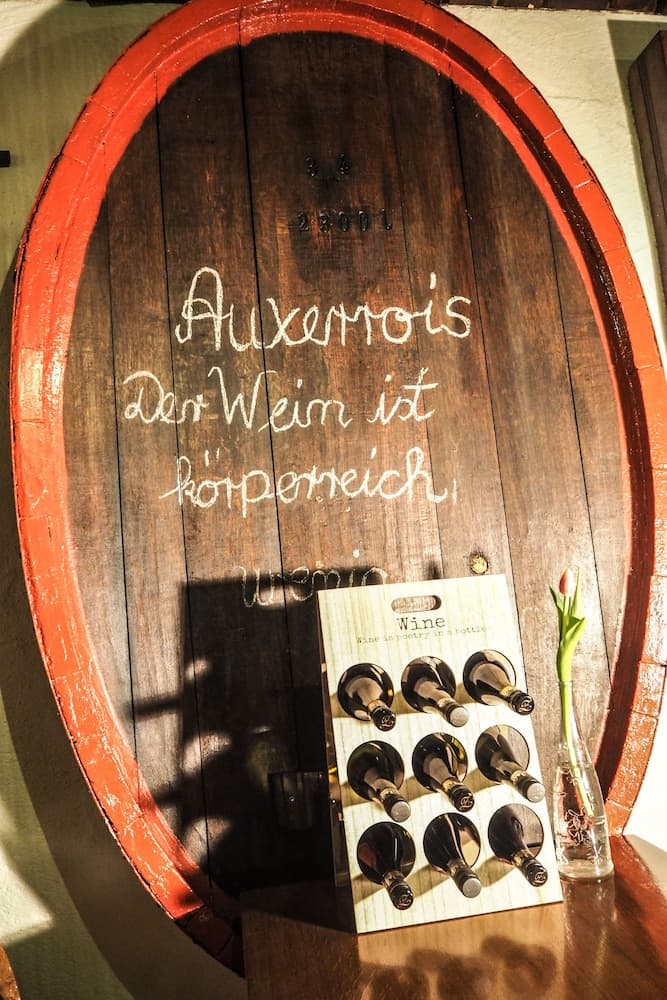 2300L
Auxerrois
Der Wein ist
körperreich,
Wine
Wine is poetry in a bottle